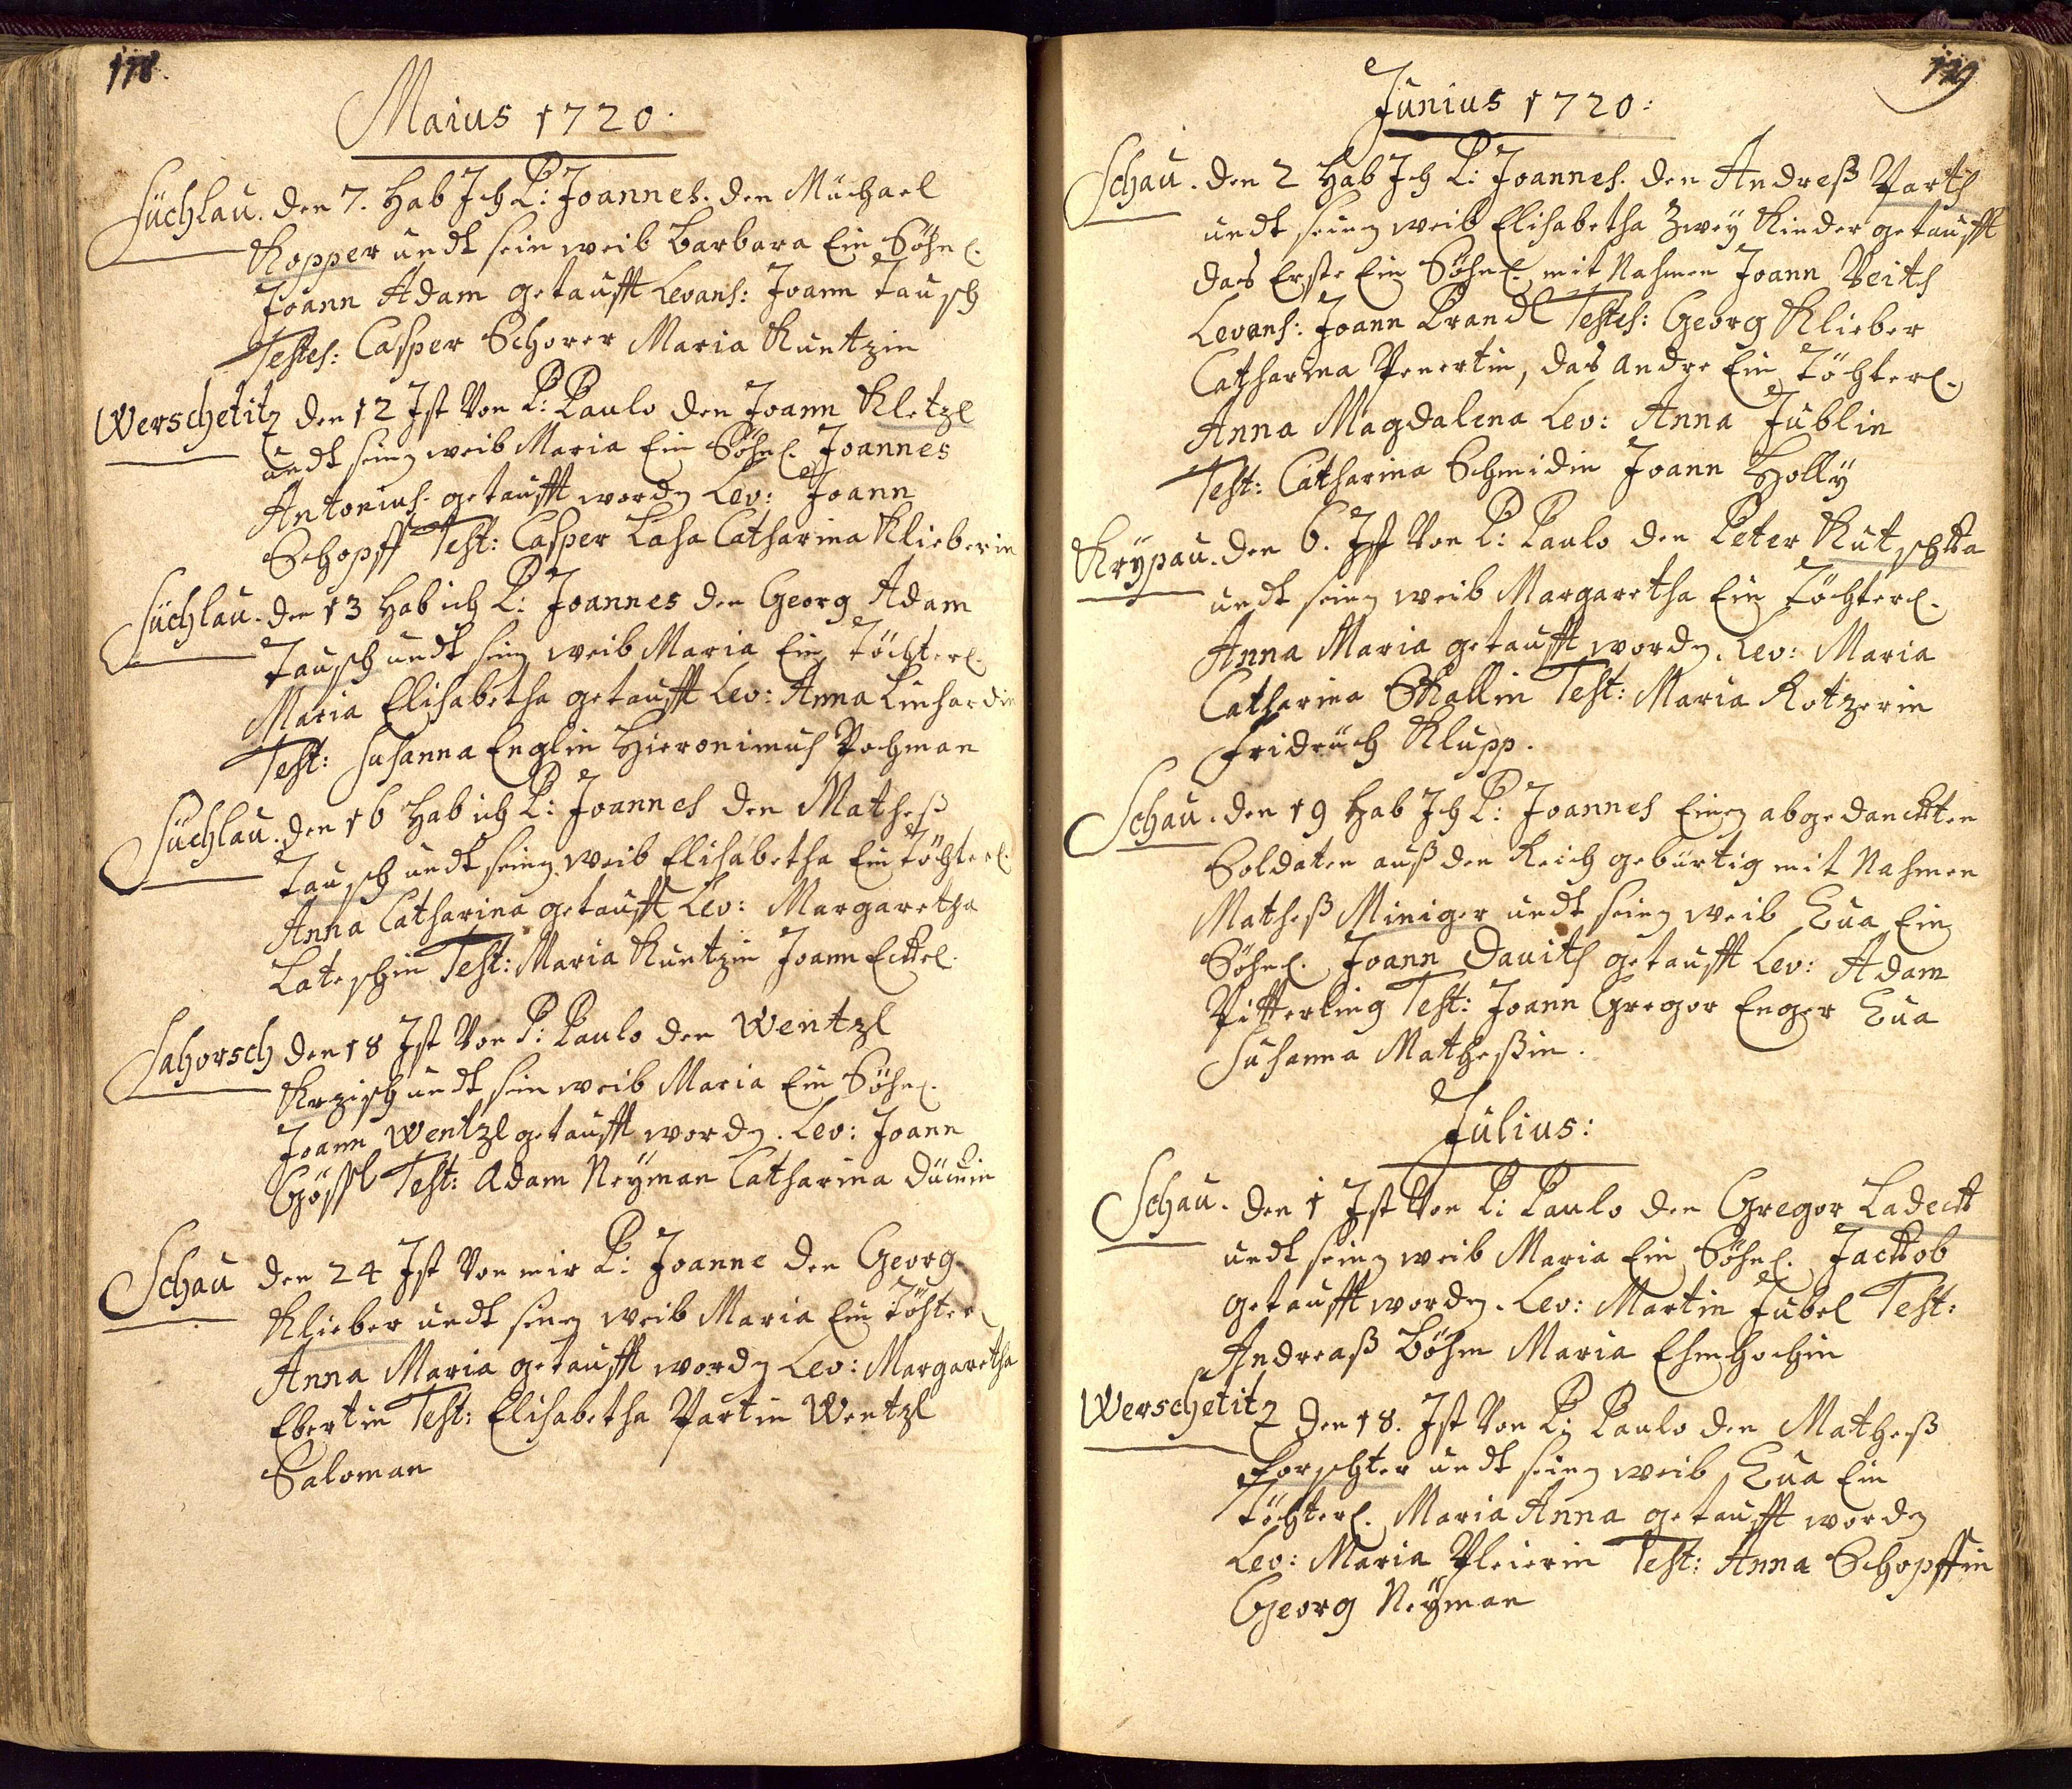 178.
Maius 1720.
Süchlau. den 7. Hab Ich P: Joannes. den Müchael
Kopper undt sein weib Barbara Ein Söhnl.
Joann Adam getaufft Levans: Joann Tausch
Testes: Casper Schorer Maria Kuntzin
Werschetitz den 12 Ist Von P: Paulo den Joann Kletzl
undt seing weib Maria Ein Söhnl. Joannes
Antonius. getaufft wordn Lev: Joann
Schopff Test: Casper Lasa Catharina Klieberin
Süchlau. den 13 Hab ich P: Joannes den Georg Adam
Tausch undt seing weib Maria Ein Töchterl.
Maria Elisabetha getaufft Lev: Anna Linhardin
Test: Susanna Englin Hieronimus Pochman
Süchlau. den 16 Hab ich P: Joannes den Matheß
Tausch undt seing weib Elisabetha Ein Töchterl.
Anna Catharina getaufft Lev: Margaretha
Lateschin Test: Maria Kuntzin Joann Eckel.
Sahorsch den 18 Ist Von P: Paulo den Wentzl
Krzisch undt sein weib Maria Ein Söhnl.
Joann Wentzl getaufft wordn. Lev: Joann
Gössl Test: Adam Neyman Catharina
Schau den 24 Ist Von mir P: Joanne den Georg
Klieber undt seing weib Maria Ein Töchterl
Anna Maria getaufft wordn Lev: Margaretha
Ebertin Test: Elisabetha Partin Wentzl
Saloman
179
Junius 1720:
Schau. den 2 Hab Ich P: Joannes. den Andreß Parth
undt seing weib Elisabetha Zwey Kinder getaufft
das Erste Ein Söhnl. mit Nahmen Joann Veith
Levans: Joann Brandl Testes: Georg Klieber
Catharina Penertin, das andre Ein Töchterl.
Anna Magdalena Lev: Anna Jublin
Test: Catharina Schmidin Joann Holly
Krÿpau. den 6. Ist Von P: Paulo den Peter Kutschka
undt seing weib Margaretha Ein Töchterl.
Anna Maria getaufft wordn. Lev: Maria
Catharina Skallin Test: Maria Kotzerin
Fridrüch Klupp.
Schau. den 19 Hab Ich P: Joannes Einen abgedanckten
Soldaten auß den Reich gebürtig mit Nahmen
Matheß Miniger undt seing weib Eua Ein
Söhnl. Joann Dauith getaufft Lev: Adam
Pitterling Test: Joann Gregor Enger Eua
Susanna Matheßin.
Julius:
Schau. den 1 Ist Von P: Paulo den Gregor Ladeck
undt seing weib Maria Ein Söhnl. Jackob
getaufft wordn. Lev: Martin Jubel Test:
Andreaß Böhm Maria Ehmhochin
Werschetitz den 18. Ist Von P: Paulo den Matheß
Forschter undt seing weib Eua Ein
Töchterl. Maria Anna getaufft wordn
Lev: Maria Pleierin Test: Anna Schopffin
Georg Neÿman